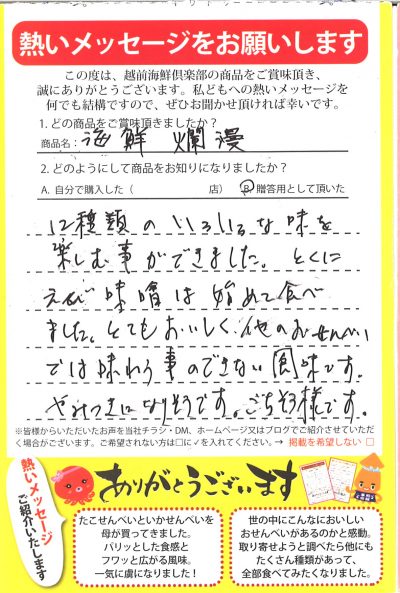 熱いメッセージをお願いします
この度は、越前海鮮倶楽部の商品をご賞味頂き、
誠にありがとうございます。私どもへの熱いメッセージを
何でも結構ですので、ぜひお聞かせ頂ければ幸いです。
1. どの商品をご賞味頂きましたか？
商品名： 海鮮 爛漫
2. どのようにして商品をお知りになりましたか？
A. 自分で購入した（ 店） B. 贈答用として頂いた
12種類のいろいろな味を
楽しむ事ができました。とくに
えび味噌は始めて食べ
ました。とてもおいしく他のおせんべい
では味わう事のできない風味です。
やみつきになりそうです。ごちそう様です。
※皆様からいただいたお声を当社チラシ・DM、ホームページ又はブログでご紹介させていただ
く場合がございます。ご希望されない方は□に✓を入れてください。→ 掲載を希望しない □
熱いメッセージ
ご紹介いたします
ありがとうございます
たこせんべいといかせんべいを
母が買ってきました。
パリッとした食感と
フワッと広がる風味。
一気に虜になりました！
世の中にこんなにおいしい
おせんべいがあるのかと感動。
取り寄せようと調べたら他にも
たくさん種類があって、
全部食べてみたくなりました。